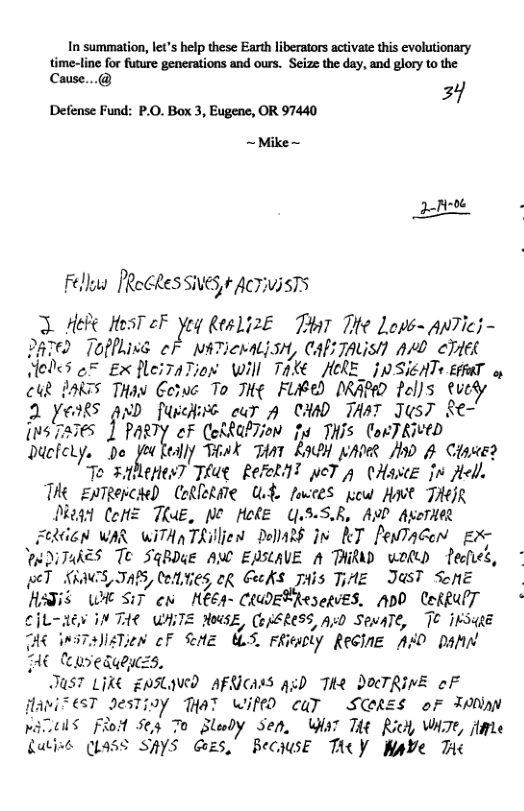 In summation, let's help these Earth liberators activate this evolutionary
time-line for future generations and ours. Seize the day, and glory to the
Cause...@
34
Defense Fund: P.O. Box 3, Eugene, OR 97440
~ Mike ~
2-14-06
Fellow PROGRESSIVES,+ ACTIVISTS
I HOPE MOST OF YOU REALIZE THAT THE LONG-ANTICI-
PATED TOPPLING OF NATIONALISM, CAPITALISM AND OTHER
MODES OF EXPLOITATION WILL TAKE MORE INSIGHT + EFFORT ON
OUR PARTS THAN GOING TO THE FLAGED DRAPED POLLS EVERY
2 YEARS AND PUNCHING OUT A CHAD THAT JUST RE-
INSTATES 1 PARTY OF CORRUPTION IN THIS CONTRIVED
DUOPOLY. DO YOU REALLY THINK THAT RALPH NADER HAD A CHANCE?
TO IMPLEMENT TRUE REFORM? NOT A CHANCE IN HELL.
THE ENTRENCHED CORPORATE U.$. POWERS NOW HAVE THEIR
DREAM COME TRUE. NO MORE U.S.S.R. AND ANOTHER
FOREIGN WAR WITH A TRILLION DOLLAR$ IN PENTAGON EX-
PENDITURES TO SUBDUE AND ENSLAVE A THIRD WORLD PEOPLES.
NOT KRAUTS, JAPS, COMMIES, OR GOOKS THIS TIME JUST SOME
HAJIS WHO SIT ON MEGA-CRUDE OIL RESERVES. ADD CORRUPT
OIL-MEN IN THE WHITE HOUSE, CONGRESS, AND SENATE, TO INSURE
THE INSTALLATION OF SOME U.S. FRIENDLY REGIME AND DAMN
THE CONSEQUENCES.
JUST LIKE ENSLAVED AFRICANS AND THE DOCTRINE OF
MANIFEST DESTINY THAT WIPED OUT SCORES OF INDIAN
NATIONS FROM SEA TO BLOODY SEA. WHAT THE RICH, WHITE, MALE
RULING CLASS SAYS GOES. BECAUSE THEY HAVE THE